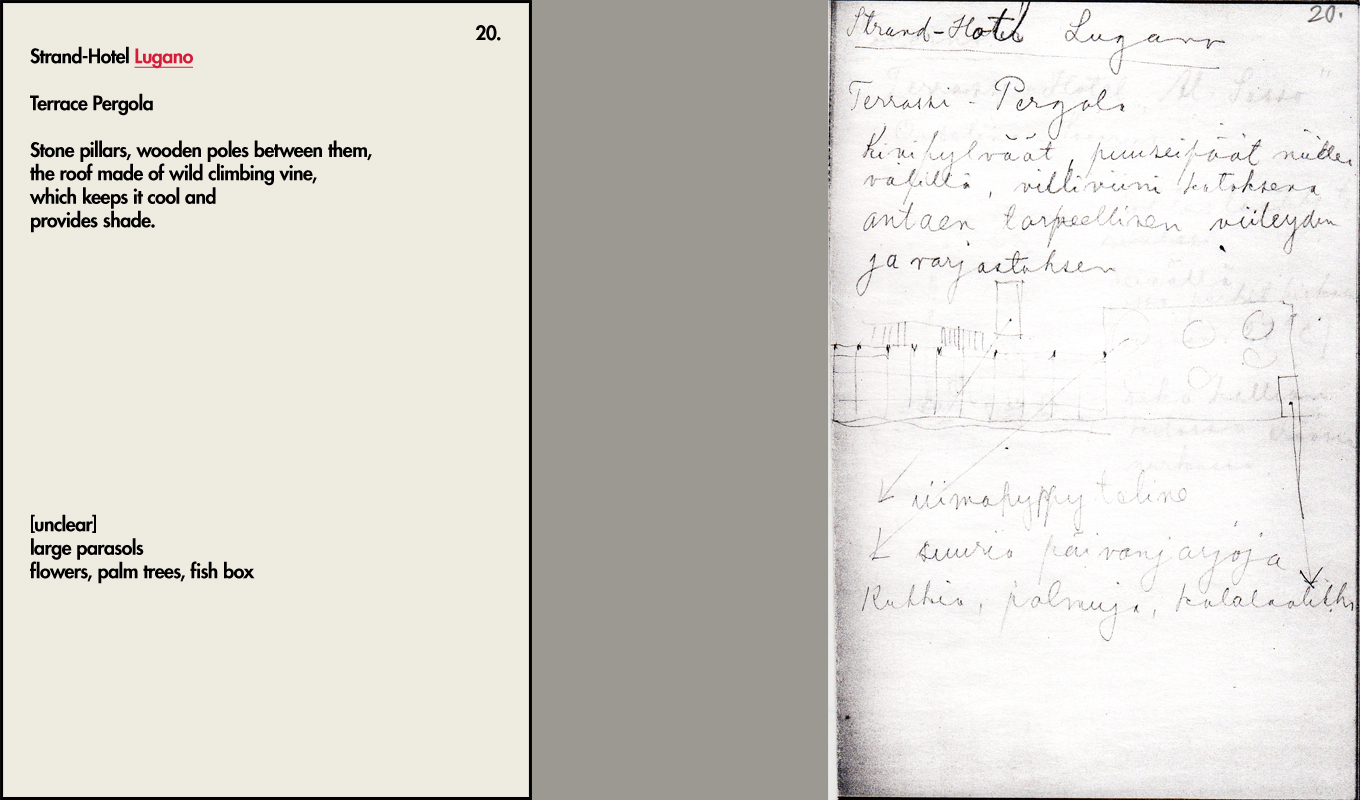 20.
Strand-Hotel Lugano
Terrace Pergola
Stone pillars, wooden poles between them,
the roof made of wild climbing vine,
which keeps it cool and
provides shade.
[unclear]
large parasols
flowers, palm trees, fish box
20.
Strand-Hotel Lugano
Terrassi - Pergola
Kivipylväät, puuseipäät niitten
välillä, villiviini katoksena
antaen tarpeellisen viileyden
ja varjostuksen
uimahyppy teline
suuria päivänvarjoja
Kukkia, palmuja, kalalaatikko